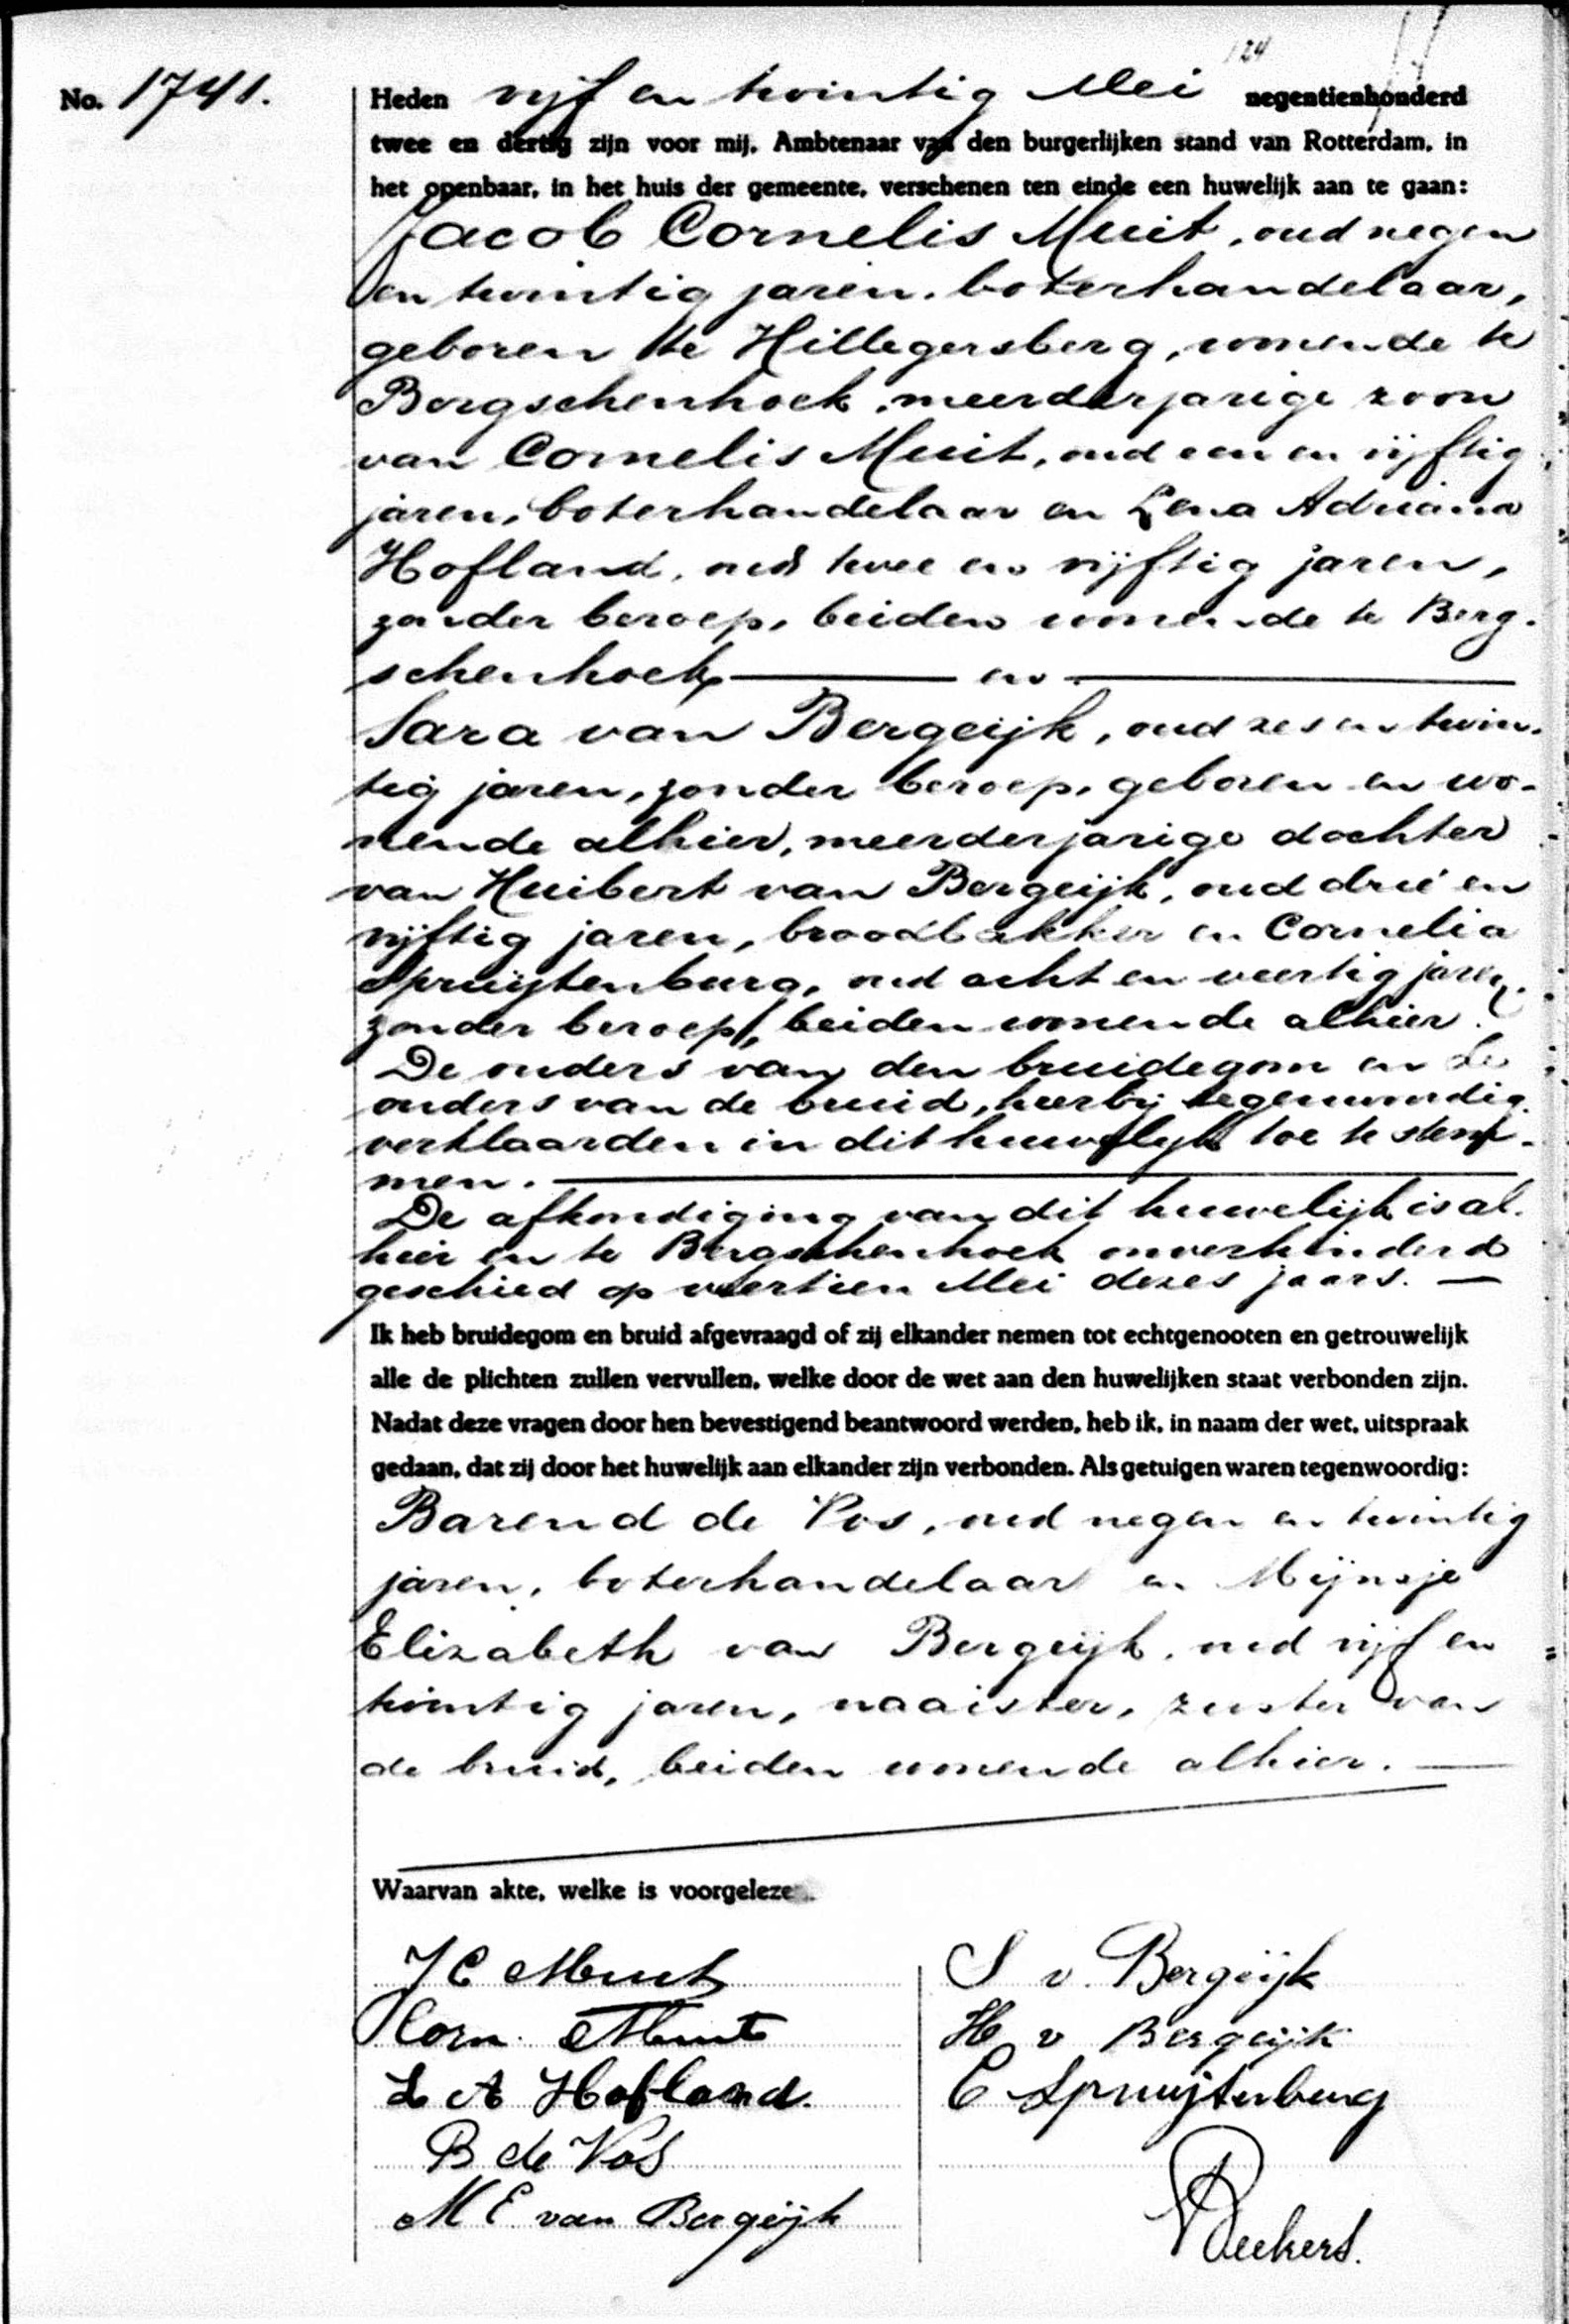 124
No. 1741.
Heden vijf en twintig Mei negentienhonderd
twee en dertig zijn voor mij, Ambtenaar van den burgerlijken stand van Rotterdam, in
het openbaar, in het huis der gemeente, verschenen ten einde een huwelijk aan te gaan:
Jacob Cornelis Muit, oud negen
en twintig jaren, boterhandelaar,
geboren te Hillegersberg, wonende te
Bergschenhoek, meerderjarige zoon
van Cornelis Muit, oud een en vijftig
jaren, boterhandelaar en Lena Adriana
Hofland, oud twee en vijftig jaren,
zonder beroep, beiden wonende te Berg-
schenhoek en
Sara van Bergeijk, oud zes en twin-
tig jaren, zonder beroep, geboren en wo-
nende alhier, meerderjarige dochter
van Huibert van Bergeijk, oud drie en
vijftig jaren, broodbakker en Cornelia
Spruijtenburg, oud acht en veertig jaren,
zonder beroep, beiden wonende alhier.
De ouders van den bruidegom en de
ouders van de bruid, hierbij tegenwoordig
verklaarden in dit huwelijk toe te stem-
men.
De afkondiging van dit huwelijk is al-
hier en te Bergschenhoek onverhinderd
geschied op veertien Mei dezes jaars.
Ik heb bruidegom en bruid afgevraagd of zij elkander nemen tot echtgenooten en getrouwelijk
alle de plichten zullen vervullen, welke door de wet aan den huwelijken staat verbonden zijn.
Nadat deze vragen door hen bevestigend beantwoord werden, heb ik, in naam der wet, uitspraak
gedaan, dat zij door het huwelijk aan elkander zijn verbonden. Als getuigen waren tegenwoordig:
Barend de Vos, oud negen en twintig
jaren, boterhandelaar en Mijnsje
Elizabeth van Bergeijk, oud vijf en
twintig jaren, naaister, zuster van
de bruid, beiden wonende alhier.
Waarvan akte, welke is voorgelezen.
J C Muit
Corn. Muit
L A Hofland.
B de Vos
M E van Bergeijk
S v. Bergeijk
H v Bergeijk
C Spruijtenburg